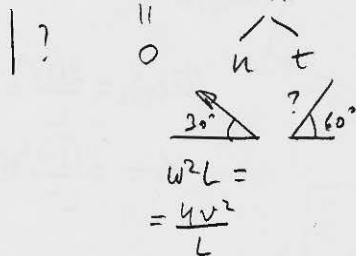 ?
||
0
n t
30° ? 60°
w²L =
= 4v²/L